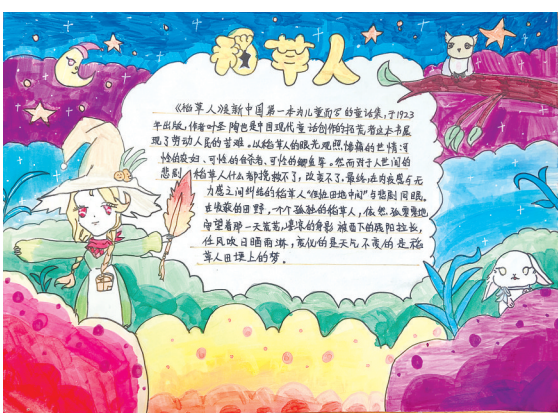 稻草人
《稻草人》是新中国第一本为儿童而写的童话集,于1923
年出版,作者叶圣陶也是中国现代童话创作的拓荒者这本书展
现了劳动人民的苦难。以稻草人的眼光观照悲痛的世情:可
怜的农妇、可怜的自杀者、可怜的鲫鱼等。然而对于人世间的
悲剧,稻草人什么都挽救不了,改变不了。最终,在内疚感与无
力感之间纠结的稻草人“倒在田地中间”与悲剧同眠。
在收获的田野,一个个孤独的稻草人,依然孤零零地
守望着那一天荒芜,凄凉的身影被西下的残阳拉长,
任风吹日晒雨淋,变化的是天气不变的是稻
草人田埂上的梦。